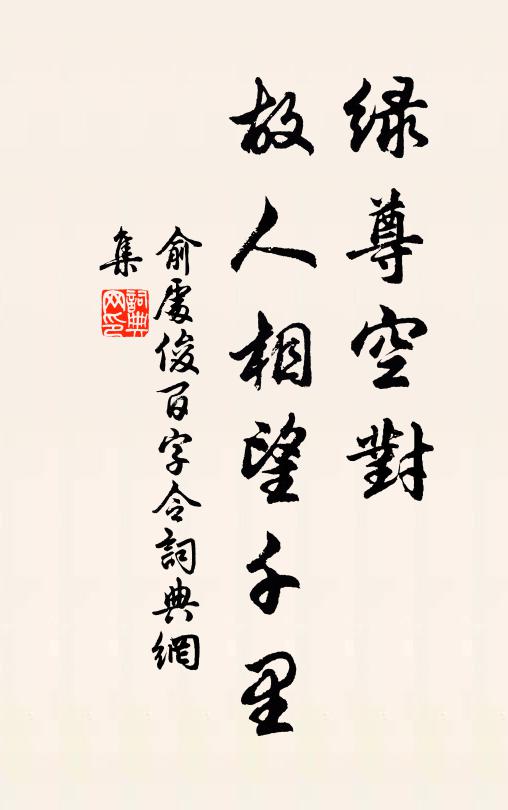 緑尊空對
故人相望千里
俞處俊百字令詞典網
集
詞典
网印